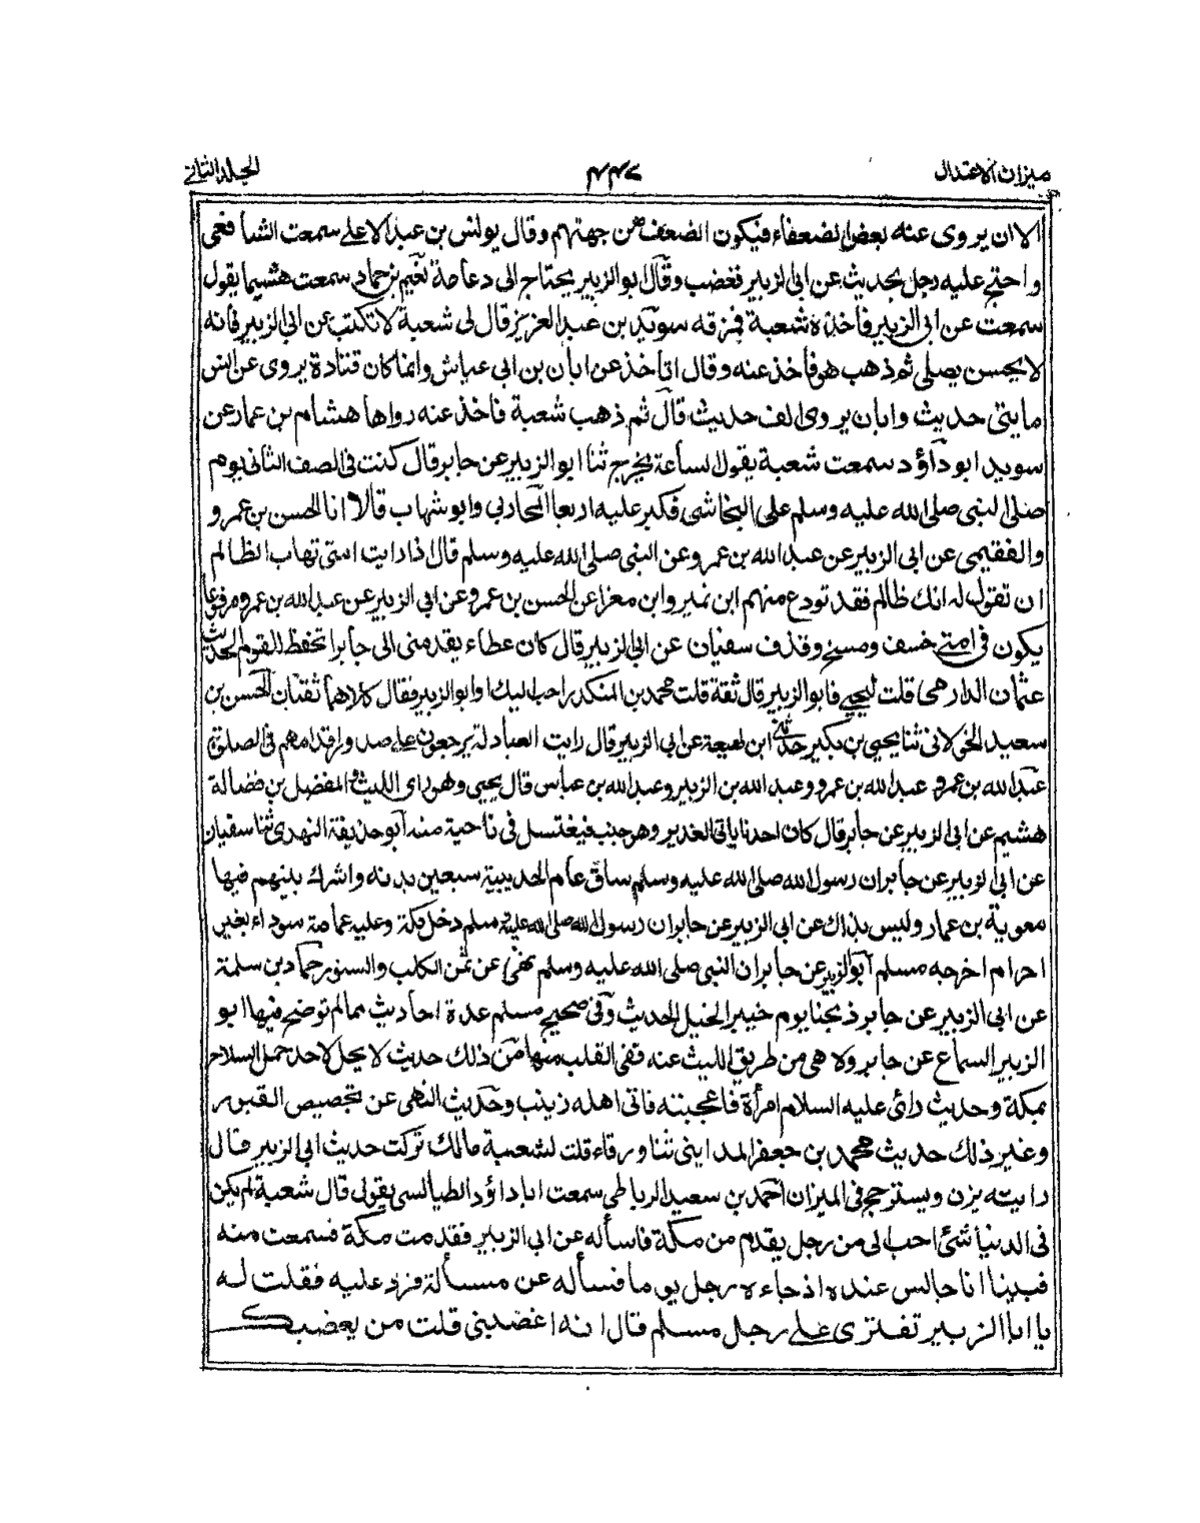 ميزان الاعتدال
٤٤٧
الجلد الثانى
الا ان يروى عنه بعض الضعفاء فيكون الضعف من جهتهم وقال يونس بن عبد الاعلى سمعت الشافعى
واحتج عليه رجل بحديث عن ابى الزبير فغضب وقال ابو الزبير يحتاج الى دعامة نعيم بن حماد سمعت هشيما يقول
سمعت عن ابى الزبير فاخذه شعبة فمزقه سويد بن عبد العزيز قال لى شعبة لا تكتب عن ابى الزبير فانه
لا يحسن يصلى ثم ذهب هو فاخذ عنه وقال انا خذ عن ابان بن ابى عياش وانما كان قتادة يروى عن انس
مايتى حديث وابان يروى الف حديث قال ثم ذهب شعبة فاخذ عنه رواها هشام بن عمار عن
سويد ابو داؤد سمعت شعبة يقول لساعة يخرج ثنا ابو الزبير عن جابر قال كنت فى الصف الثانى يوم
صلى النبى صلى الله عليه وسلم على النجاشى فكبر عليه اربعا المحاربى وابو شهاب قالا انا الحسن بن عمرو
والفقيمى عن ابى الزبير عن عبد الله بن عمرو عن النبى صلى الله عليه وسلم قال اذا رايت امتى تهاب الظالم
ان تقول له انك ظالم فقد تودع منهم ابن نمير وابن مغرا عن الحسن بن عمرو عن ابى الزبير عن عبد الله بن عمرو مرفوعا
يكون فى امتى خسف ومسخ وقذف سفيان عن ابى الزبير قال كان عطاء يقدمنى الى جابر احفظ للقوم الحديث
عثمان الدارمى قلت ليحيى فابو الزبير قال ثقة قلت محمد بن المنكدر احب اليك او ابو الزبير فقال كلاهما ثقتان الحسن بن
سعيد الخولانى ثنا يحيى بن بكير حدثنى ابن لهيعة عن ابى الزبير قال رايت العبادلة يرجعون على صدور اقدامهم فى الصلوة
عبد الله بن عمر و عبد الله بن عمرو وعبد الله بن الزبير وعبد الله بن عباس قال يحيى وهو راى الليث والمفضل بن فضالة
هشيم عن ابى الزبير عن جابر قال كان احدنا ياتى الغدير وهو جنب فيغتسل فى ناحية منه ابو حذيفة النهدى ثنا سفيان
عن ابى الزبير عن جابر ان رسول الله صلى الله عليه وسلم ساق عام الحديبية سبعين بدنه واشرك بينهم فيها
معوية بن عمار وليس بذاك عن ابى الزبير عن جابر ان رسول الله صلى الله عليه وسلم دخل مكة وعليه عمامة سوداء بغير
احرام اخرجه مسلم ابو الزبير عن جابر ان النبى صلى الله عليه وسلم نهى عن ثمن الكلب والسنور حماد بن سلمة
عن ابى الزبير عن جابر ذبحنا يوم خيبر الخيل الحديث وفى صحيح مسلم عدة احاديث مما لم توضح فيها ابو
الزبير السماع عن جابر ولا هى من طريق الليث عنه ففى القلب منها من ذلك حديث لا يحل لاحد حمل السلاح
بمكة وحديث رائ عليه السلام امرأة فاعجبته فاتى اهله زينب وحديث النهى عن تجصيص القبور
وغير ذلك حديث محمد بن جعفر المداينى ثنا ورقاء قلت لشعبة مالك تركت حديث ابى الزبير قال
رايته يزن ويسترجح فى الميزان احمد بن سعيد الرباطى سمعت ابا داؤد الطيالسى يقول قال شعبة لم يكن
فى الدنيا شئ احب الى من رجل يقدم من مكة فاسأله عن ابى الزبير فقدمت مكة فسمعت منه
فبينا انا جالس عنده اذ جاءه رجل يوما فسأله عن مسألة فرد عليه فقلت له
يا ابا الزبير تفترى على رجل مسلم قال انه اغضبنى قلت من يغضبك